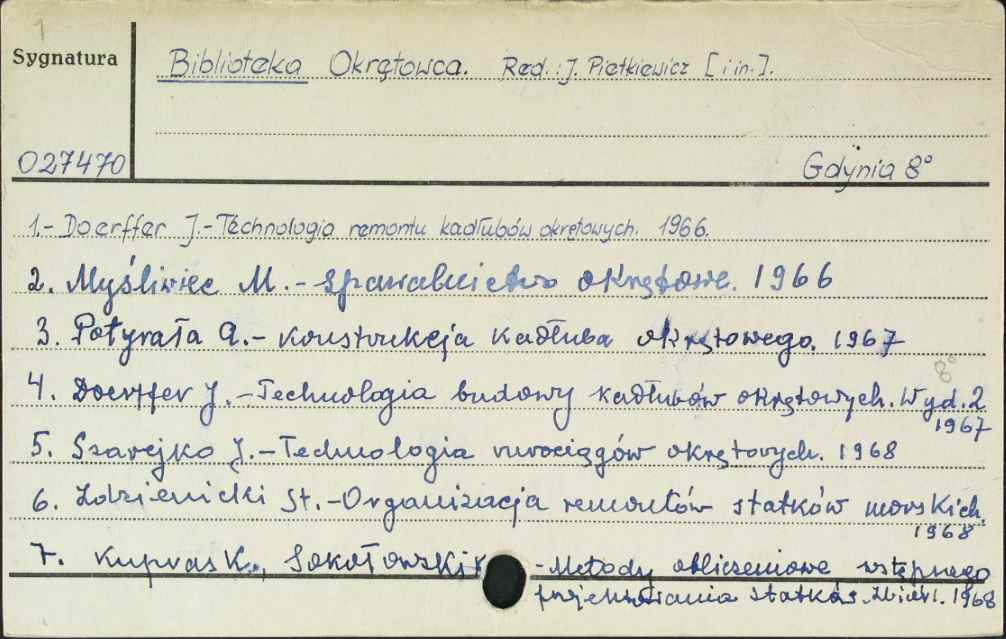 1
Sygnatura
Biblioteka Okrętowca. Red.: J. Pietkiewicz [i in.].
027470
Gdynia 8°
1.- Doerffer J.- Technologia remontu kadłubów okrętowych. 1966.
2. Myśliwiec M. - Spawalnictwo okrętowe. 1966
3. Potyrała A.- Konstrukcja kadłuba okrętowego. 1967
8°
4. Doerffer J.- Technologia budowy kadłubów okrętowych. Wyd. 2
1967
5. Szarejko J.- Technologia rurociągów okrętowych. 1968
6. Zdzienicki St.- Organizacja remontów statków morskich.
1968
7. Kupras K., Sokołowski - Metody obliczeniowe wstępnego
projektowania statków. 1968